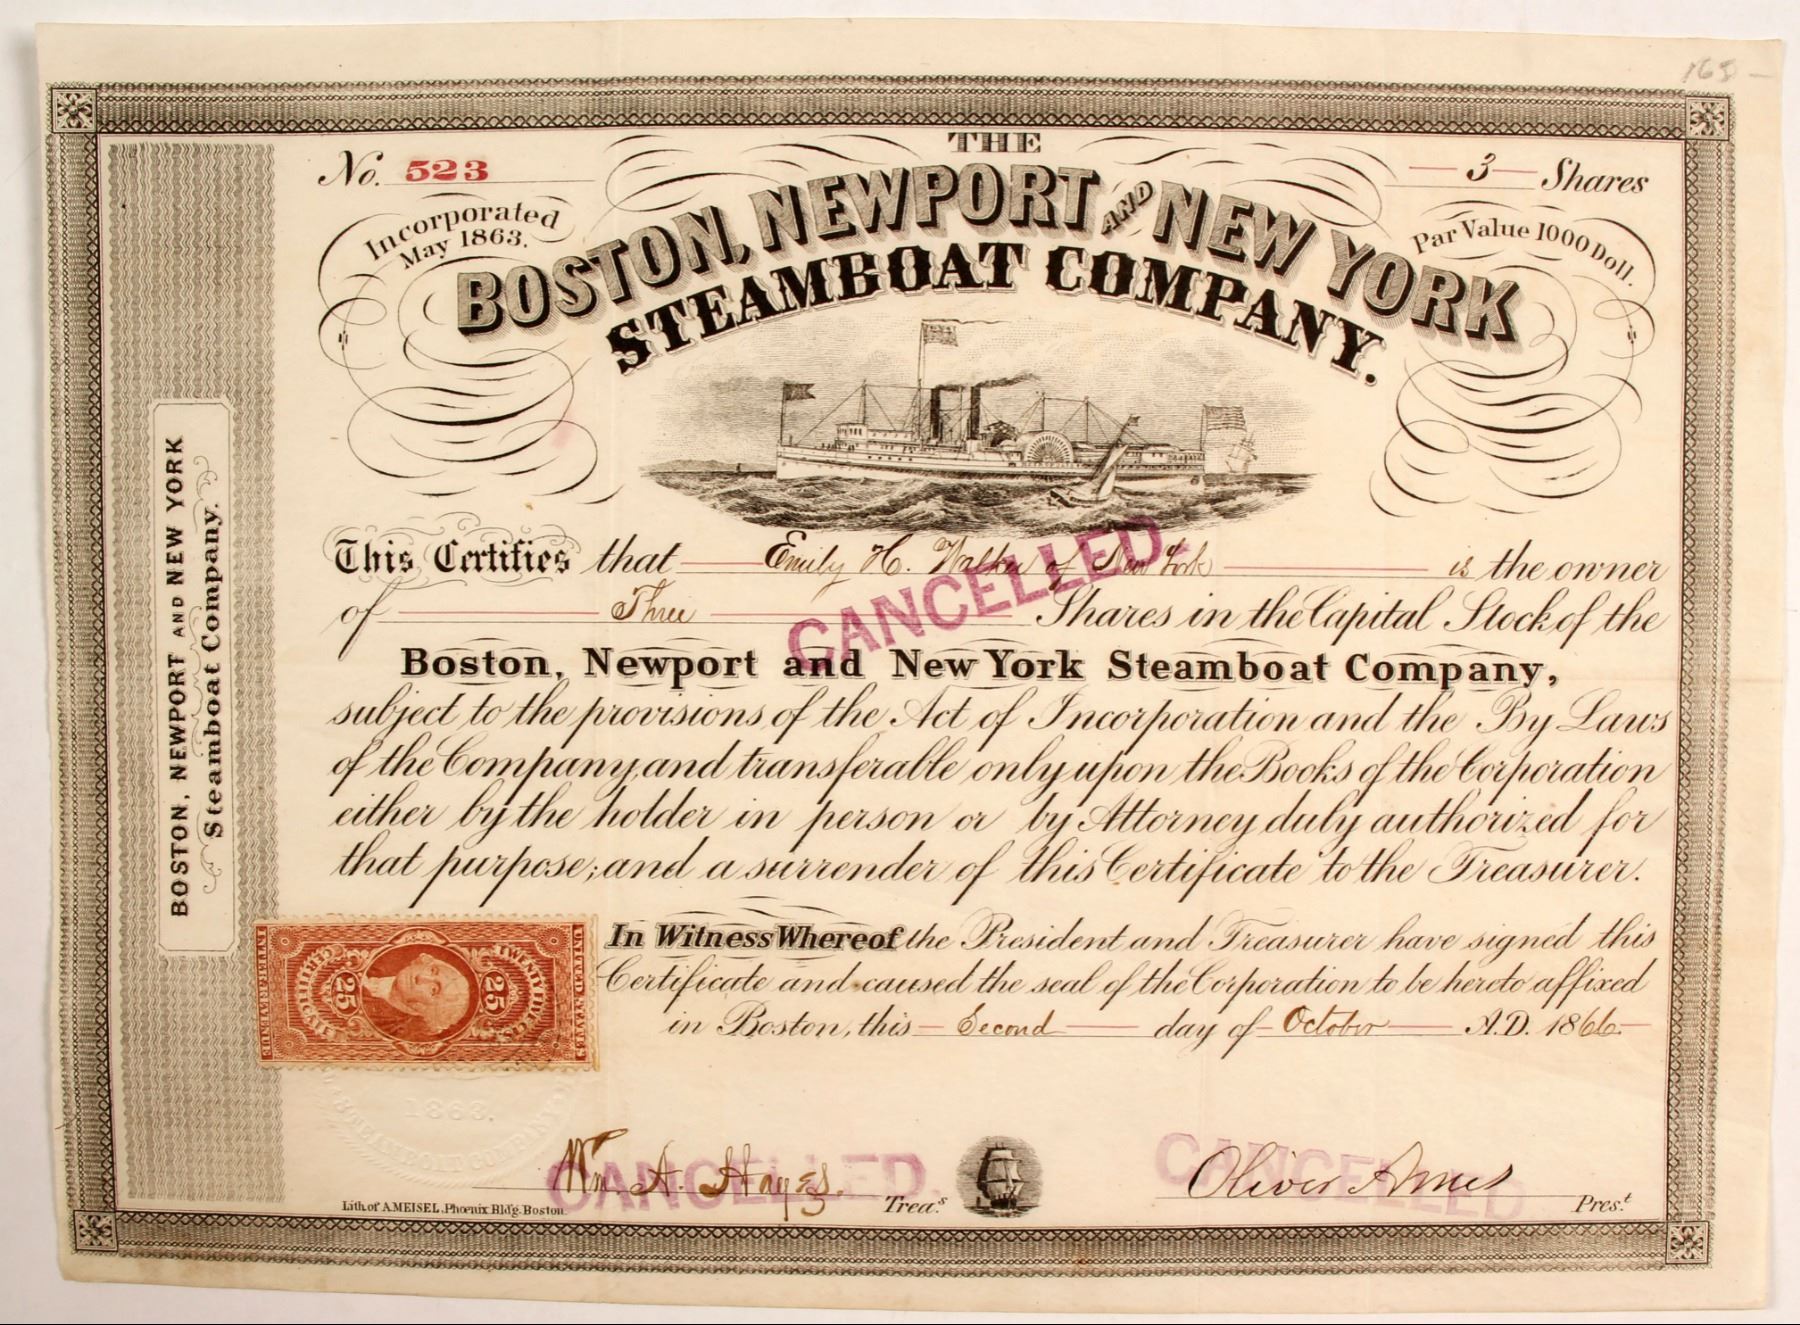 165 -
THE
No. 523
3 Shares
Incorporated
May 1863.
Par Value 1000 Doll.
BOSTON, NEWPORT AND NEW YORK
STEAMBOAT COMPANY.
This Certifies that Emily H. Walker of New York is the owner
of Three Shares in the Capital Stock of the
Boston, Newport and New York Steamboat Company,
subject to the provisions of the Act of Incorporation and the By Laws
of the Company, and transferable only upon the Books of the Corporation
either by the holder in person or by Attorney duly authorized for
that purpose; and a surrender of this Certificate to the Treasurer.
CANCELLED.
In Witness Whereof the President and Treasurer have signed this
Certificate and caused the seal of the Corporation to be hereto affixed
in Boston, this Second day of October A.D. 1866
BOSTON, NEWPORT AND NEW YORK
Steamboat Company.
UNITED STATES
TWENTY FIVE CTS
25
25
CERTIFICATE
INTER. REVENUE
1863.
STEAMBOAT COMPANY
Wm. A. Hayes. Treas.
CANCELLED.
Oliver Ames Prest
CANCELLED
Lith. of A. MEISEL, Phoenix Bld'g. Boston